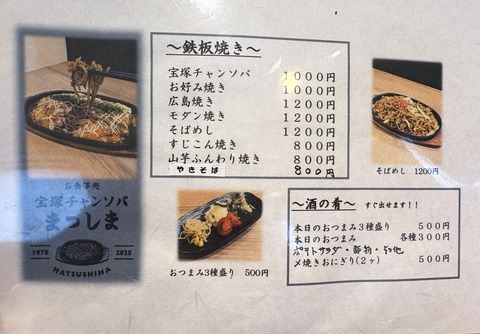 お食事処
宝塚チャンソバ
まつしま
1970 2025
MATSUSHIMA
～鉄板焼き～
宝塚チャンソバ 1000円
お好み焼き 1000円
広島焼き 1200円
モダン焼き 1200円
そばめし 1200円
すじこん焼き 800円
山芋ふんわり焼き 800円
やきそば 800円
そばめし 1200円
おつまみ3種盛り 500円
～酒の肴～ すぐ出せます！！
本日のおつまみ3種盛り 500円
本日のおつまみ 各種300円
ポテトサラダ・酢物・その他
〆焼きおにぎり(2ヶ) 500円